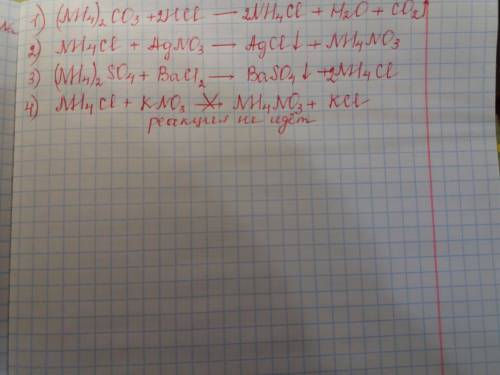 1) (NH4)2CO3 +2HCl — 2NH4Cl + H2O + CO2↑
2) NH4Cl + AgNO3 → AgCl↓ + NH4NO3
3) (NH4)2SO4 + BaCl2 → BaSO4↓ +2NH4Cl
4) NH4Cl + KNO3 ↛ NH4NO3 + KCl
реакция не идёт